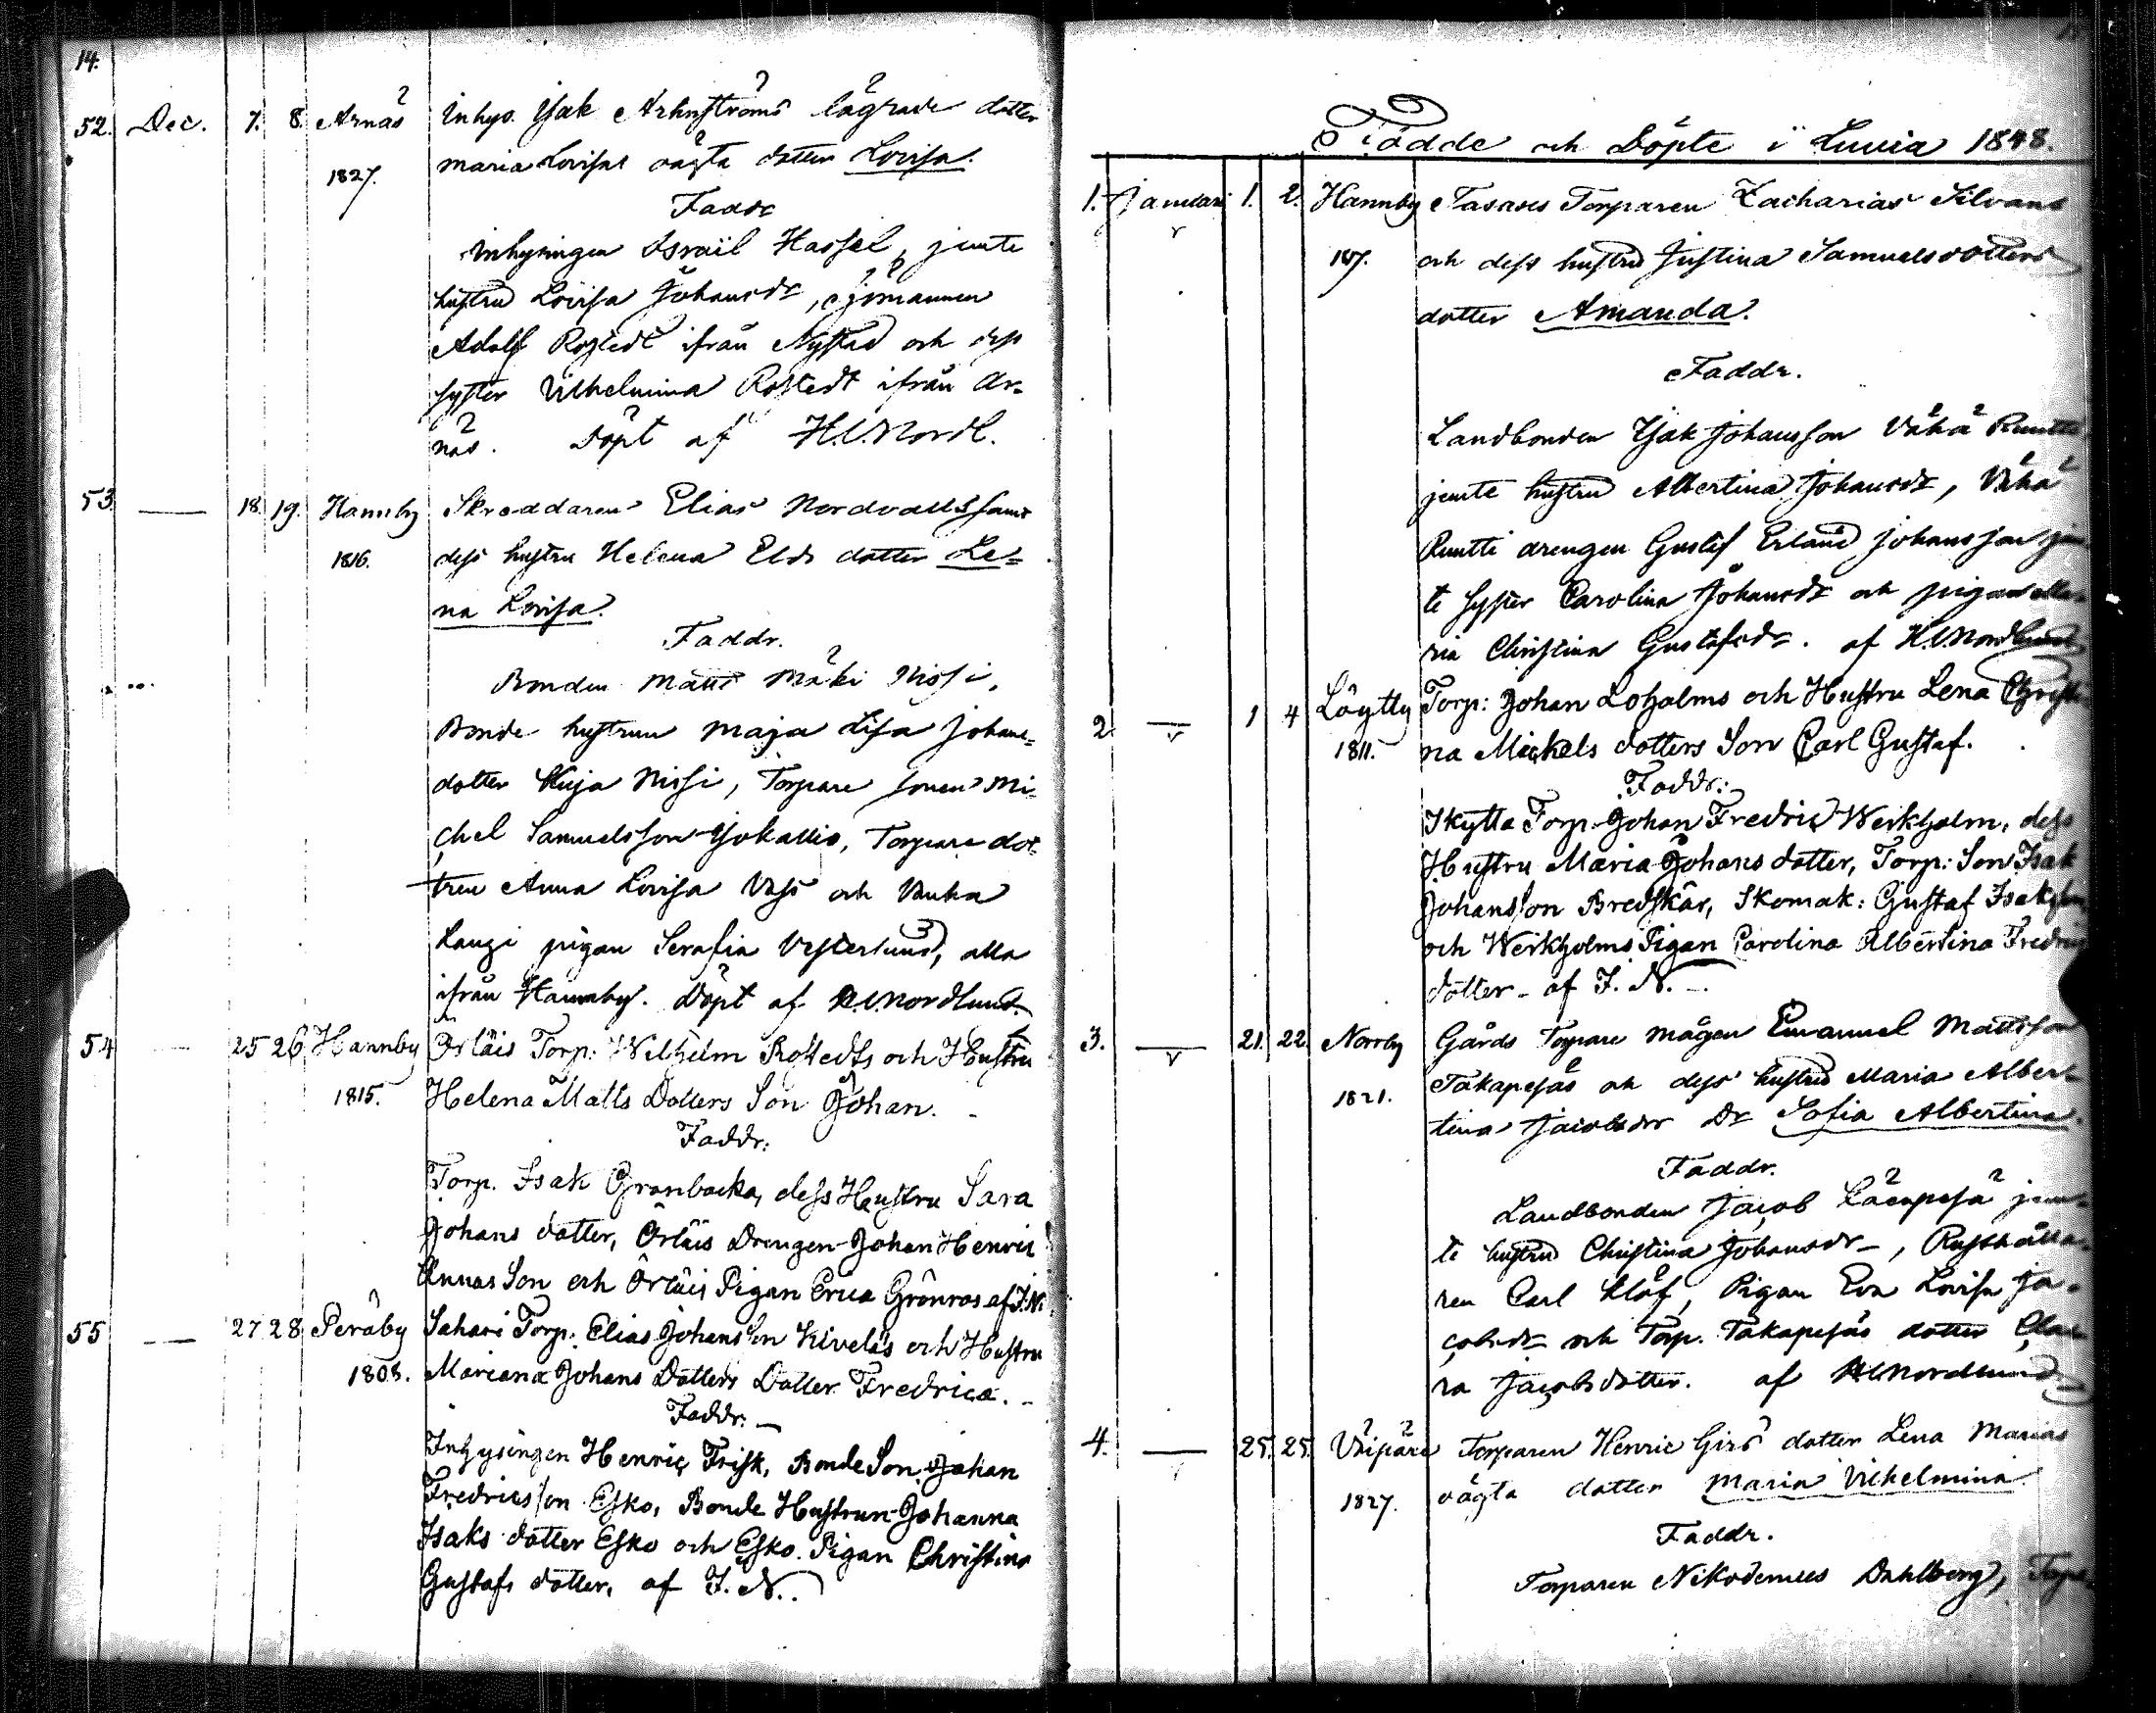 14.
52. Dec. 7. 8. Arnäs Inhys. Isak Arhnströms lägrade dotter
1827. Maria Lovisas oägta dotter Lovisa.
Faddr
Inhysingen Israil Hassel, jemte
hustru Lovisa Johansdr, sjömannen
Adolf Rostedt ifrån Nystad och dess
syster Vilhelmina Rostedt ifrån Ar=
näs. Döpt af H.U.Nordl.
53 — 18 19. Hannby Skreddaren Elias Nordvalls samt
1816. dess hustru Helena Elds dotter Le=
na Lovisa.
Faddr.
Bonden Matts Mäki Nissi,
Bonde hustrun Maja Lisa Johans=
dotter Kuja Nissi, Torpare sonen Mi=
chel Samuelsson Jokallio, Torpare dot
tren Anna Lovisa Vass och Vanha
Langi pigan Serafia Vesterlund, alla
ifrån Hannby. Döpt af H.U.Nordlund.
54 — 25 26 Hannby Örläis Torp: Wilhelm Rostedts och Hustru
1815. Helena Matts Dotters Son Johan.
Faddr:
Torp. Isak Granbacka, dess Hustru Sara
Johans dotter, Örläis Drengen Johan Henric
Annas Son och Örläis Pigan Erica Grönros af J.N.
55 — 27 28 Peräby Sahari Torp: Elias Johansson Kiveläs och Hustru
1808. Mariana Johans Dotters Dotter Fredrica.
Faddr:
Inhysingen Henric Frisk, Bonde Son Johan
Fredricsson Esko, Bonde Hustrun Johanna
Isaks dotter Esko och Esko Pigan Christina
Gustafs dotter, af J. N.
15
Födde och Döpte i Luvia 1848.
1. Januari 1. 2. Hannby Tasases Torparen Zacharias Silvans
187. och dess hustru Justina Samuelsdotters
dotter Amanda.
Faddr.
Landbonden Isak Johansson Vähä Runtti
jemte hustru Albertina Johansdr, Vähä
Runtti drengen Gustaf Erland Johansson jem
te syster Carolina Johansdr och pigan Ma=
ria Christina Gustafsdr. af H.U.Nordlund
2 — 1 4 Löytty Torp: Johan Loholms och Hustru Lena Christi
1811. na Mickels dotters Son Carl Gustaf.
Faddr:
Skytta Torp. Johan Fredric Werkholm, dess
Hustru Maria Johans dotter, Torp: Son Isak
Johansson Bredskär, Skomak: Gustaf Isaksson
och Werkholms Pigan Carolina Albertina Fredrics
dotter. af J. N.
3. — 21. 22. Norrby Gårds Torpare mågen Emanuel Mattsson
1821. Takapesäs och dess hustru Maria Alber=
tina Jacobsdrs Dr Sofia Albertina.
Faddr.
Landbonden Jacob Läenpesä jem=
te hustru Christina Johansdr, Rusthålla=
ren Carl Klåf, Pigan Eva Lovisa Ja=
cobsdr och Torp. Takapesäs dotter Cla=
ra Jacobsdotter. af H.U.Nordlund
4. — 25. 25. Väipäre Torparen Henric Girs dotter Lena Marias
1827. oägta dotter Maria Vilhelmina
Faddr.
Torparen Nikodemus Dahlberg, Torp=